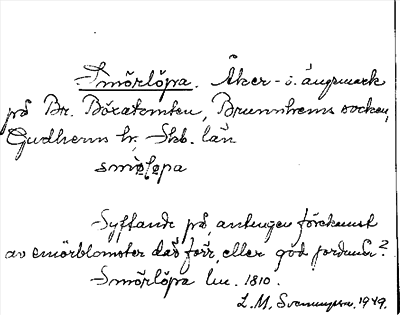 Smörlöpa. Åker- o. ängsmark
på Br. Böxatomten, Brunnhems socken,
Gudhems hr, Skb. län
Syftande på, antingen förekomst
av smörblomster där förr, eller god jordmån?
Smörlöpa lm. 1810.
L. M. Svenungsson. 1949.